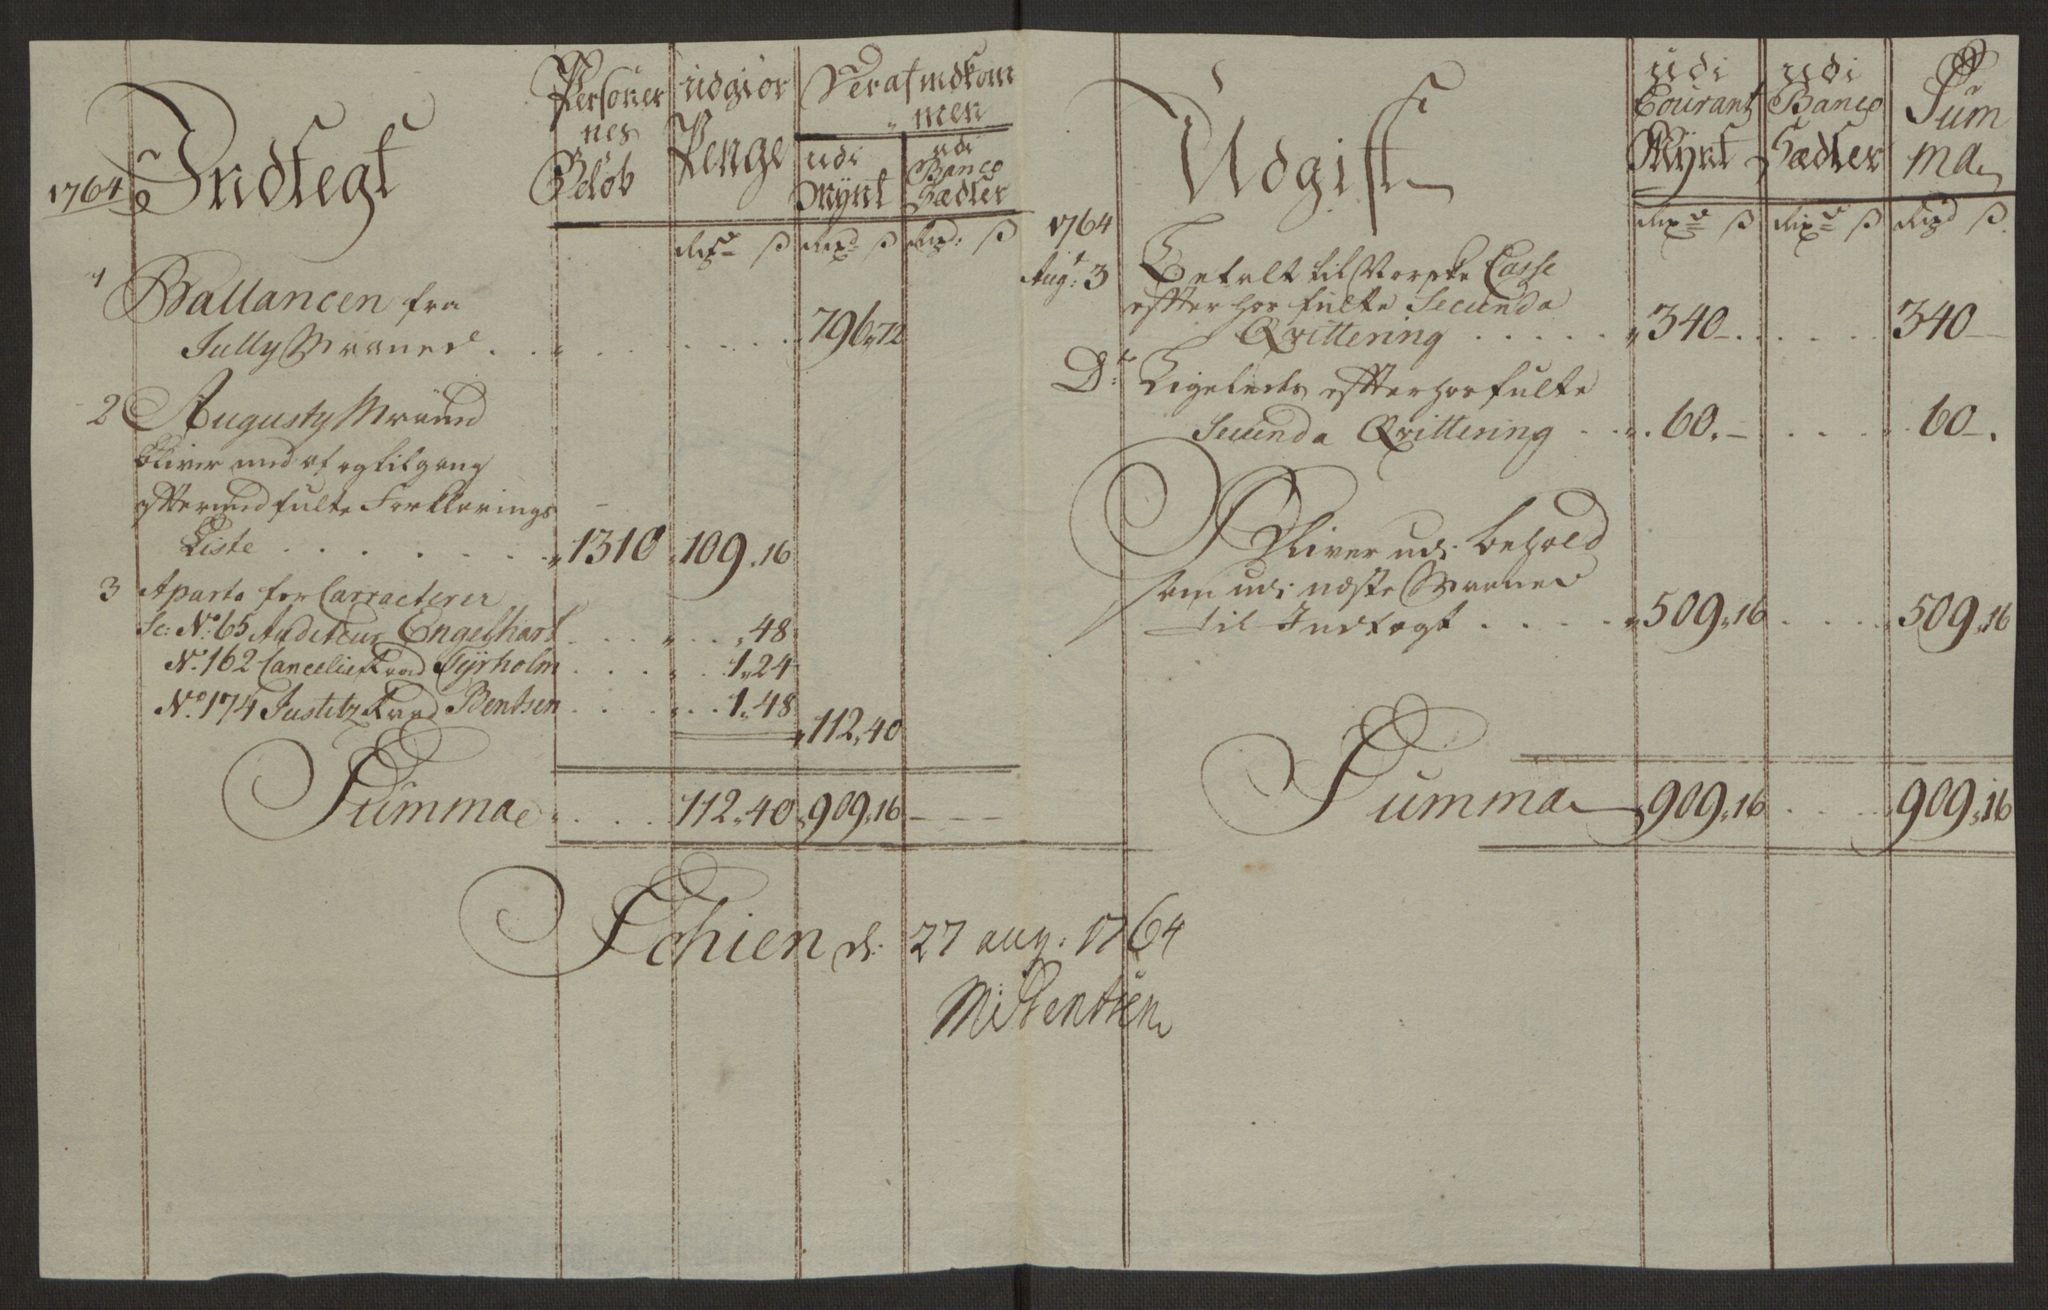 1764 Indtegt
Personer nes Beløb
udgiør Penge
Deraf indkom men
udi Mÿnt
udi Banco Sædler
Rixd ß Rixd ß Rixd: ß
1 Ballancen fra
Jully Maaned . . . 796,,72
2 Augusty Maaned
bliver med af og tilgang
effter indfulte Forklarings
Liste . . . 1310 109,,16
3 Aparte for Carracterer
Sc: No: 65 Auditeur Engelhart . . . ,,48
No. 162 Cancellie Raad Tÿrholm . . . 1,,24
No. 174 Justitz Raad Bentsen . . . 1,,48
112,,40
Summa . . . 112,,40 909,,16 - - -
Udgift
udi Courant Mÿnt
udi Banco Sædler
Summa
Rixd ß Rixd ß Rixd ß
1764
Augt: 3 Betalt til Norske Casse
effter hosfulte Secunda
Qvittering . . . 340 - . . . 340 -
Dt: Ligeledes effter hosfulte
Secunda Qvittering . . . 60. - . . . 60 -.
Bliver udi behold
som udi næste Maaned
til Indtægt . . . 509,,16 . . . 509,,16
Summa 909,,16 . . . 909,,16
Schien d: 27 aug: 1764
MBentsen